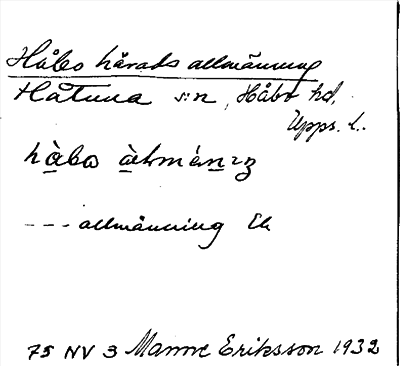 Håbo härads allmänning
Håtuna s:n, Håbo hd,
Upps. l.
hàbo àlmäniŋ
--- allmänning Ek
75 NV 3 Manne Eriksson 1932